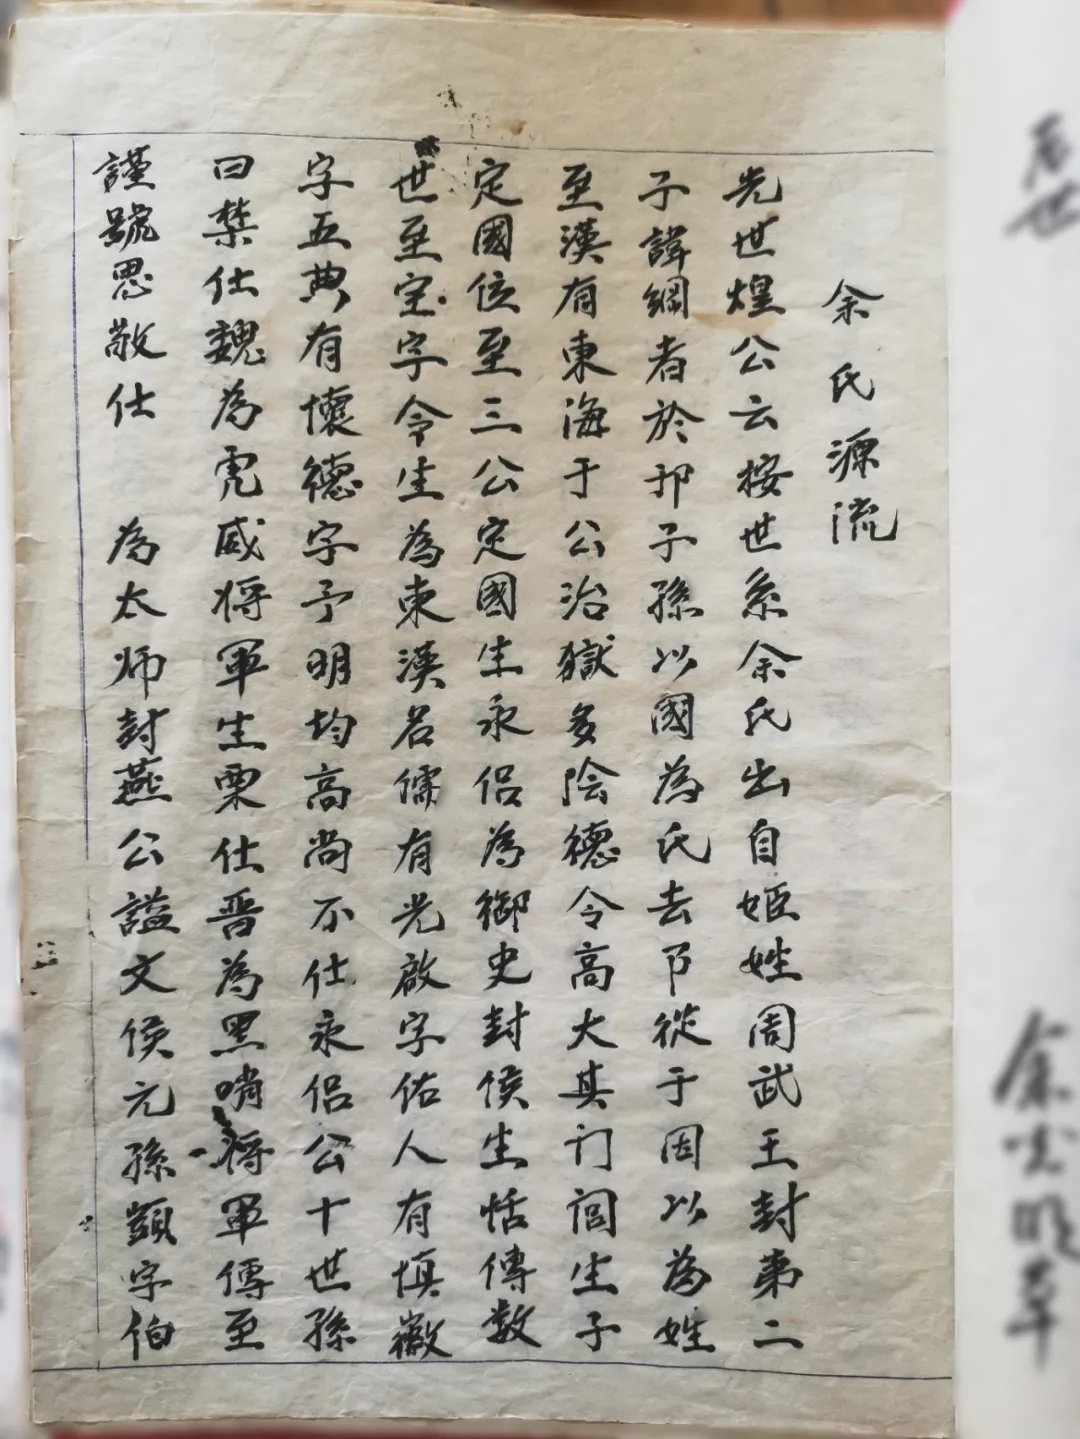 余氏源流
光世煌公云按世系余氏出自姬姓周武王封第二
子諱綱者於邘子孫以國為氏去卩從于因以為姓
至漢有東海于公治獄多陰德令高大其门閭生子
定國位至三公定國生永侣為御史封侯生恬傳数
世至定字令生為東漢名儒有光啟字佑人有慎徽
字五典有懷德字予明均高尚不仕永侣公十世孫
曰禁仕魏為虎威将軍生栗仕晋為黑哨将軍傳至
謹號思敬仕 為太师封燕公謚文侯元孫顗字伯
余